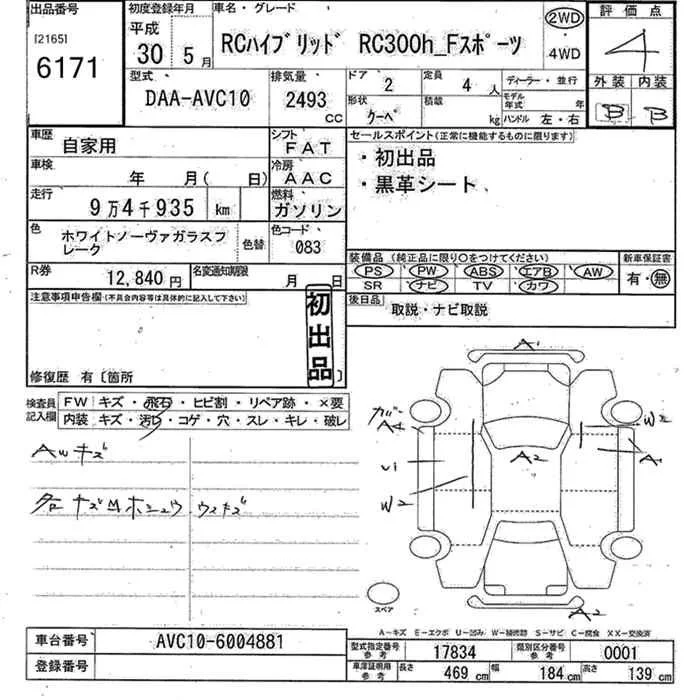 出品番号
[2165]
6171
初度登録年月
平成
30 5月
車名・グレード
RCハイブリッド RC300h_Fスポーツ
2WD
・
4WD
評価点
4
外装 内装
B B
型式
DAA-AVC10
排気量
2493 CC
ドア 2
定員 4 人
ディーラー・並行
形状 クーペ
積載 kg
モデル年式 年
ハンドル 左・右
車歴 自家用
シフト FAT
車検 年 月( 日)
冷房 AAC
走行 9万4千935 km
燃料 ガソリン
色 ホワイトノーヴァガラスフレーク
色替
色コード 083
R券 12,840 円
名変通知期限 月 日
セールスポイント(正常に機能するものに限ります)
・初出品
・黒革シート
装備品 (純正品に限り○をつけてください)
PS PW ABS エアB AW
SR ナビ TV カワ
新車保証書
有・無
後日品 取説・ナビ取説
注意事項申告欄(不具合内容等は具体的に記入して下さい)
初出品
修復歴 有〔箇所 〕
検査員記入欄
FW キズ・飛石・ヒビ割・リペア跡・×要
内装 キズ・汚れ・コゲ・穴・スレ・キレ・破レ
AWキズ
A1
A1
U1
W2
A2
W2
A1
A2
スペア
A-キズ E-エクボ U-凹み W-補修跡 S-サビ C-腐食 XX-交換済
車台番号 AVC10-6004881
登録番号
型式指定番号 参考 17834
類別区分番号 参考 0001
車庫証明用 参考 長さ 469 cm 幅 184 cm 高さ 139 cm